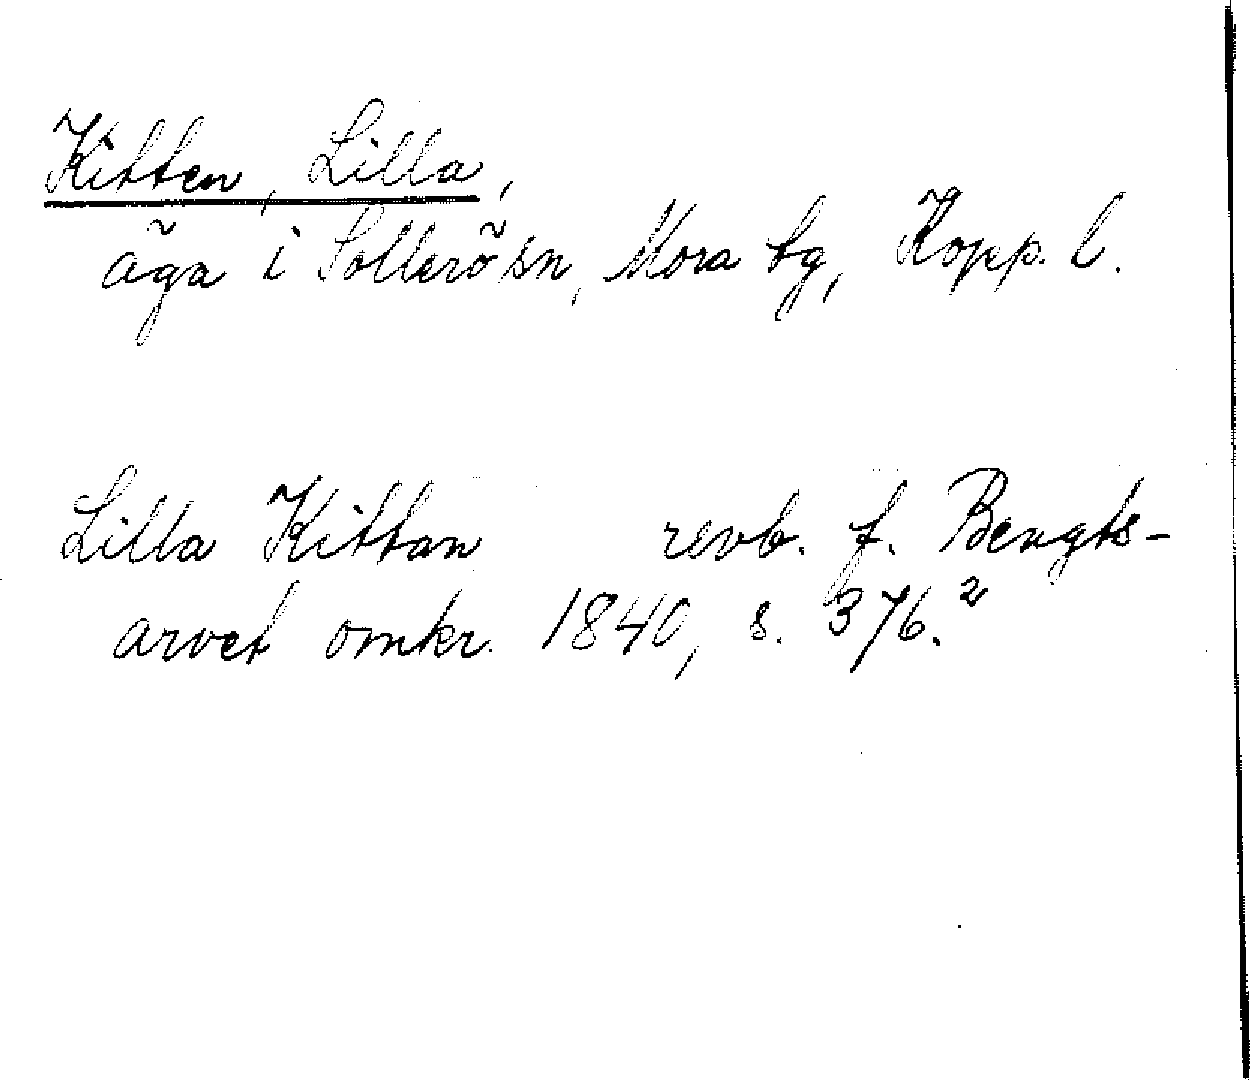 Kitten, Lilla,
äga i Sollerö sn, Mora tg, Kopp. l.
Lilla Kittan revb. f. Bengts-
arvet omkr. 1840, s. 376.²